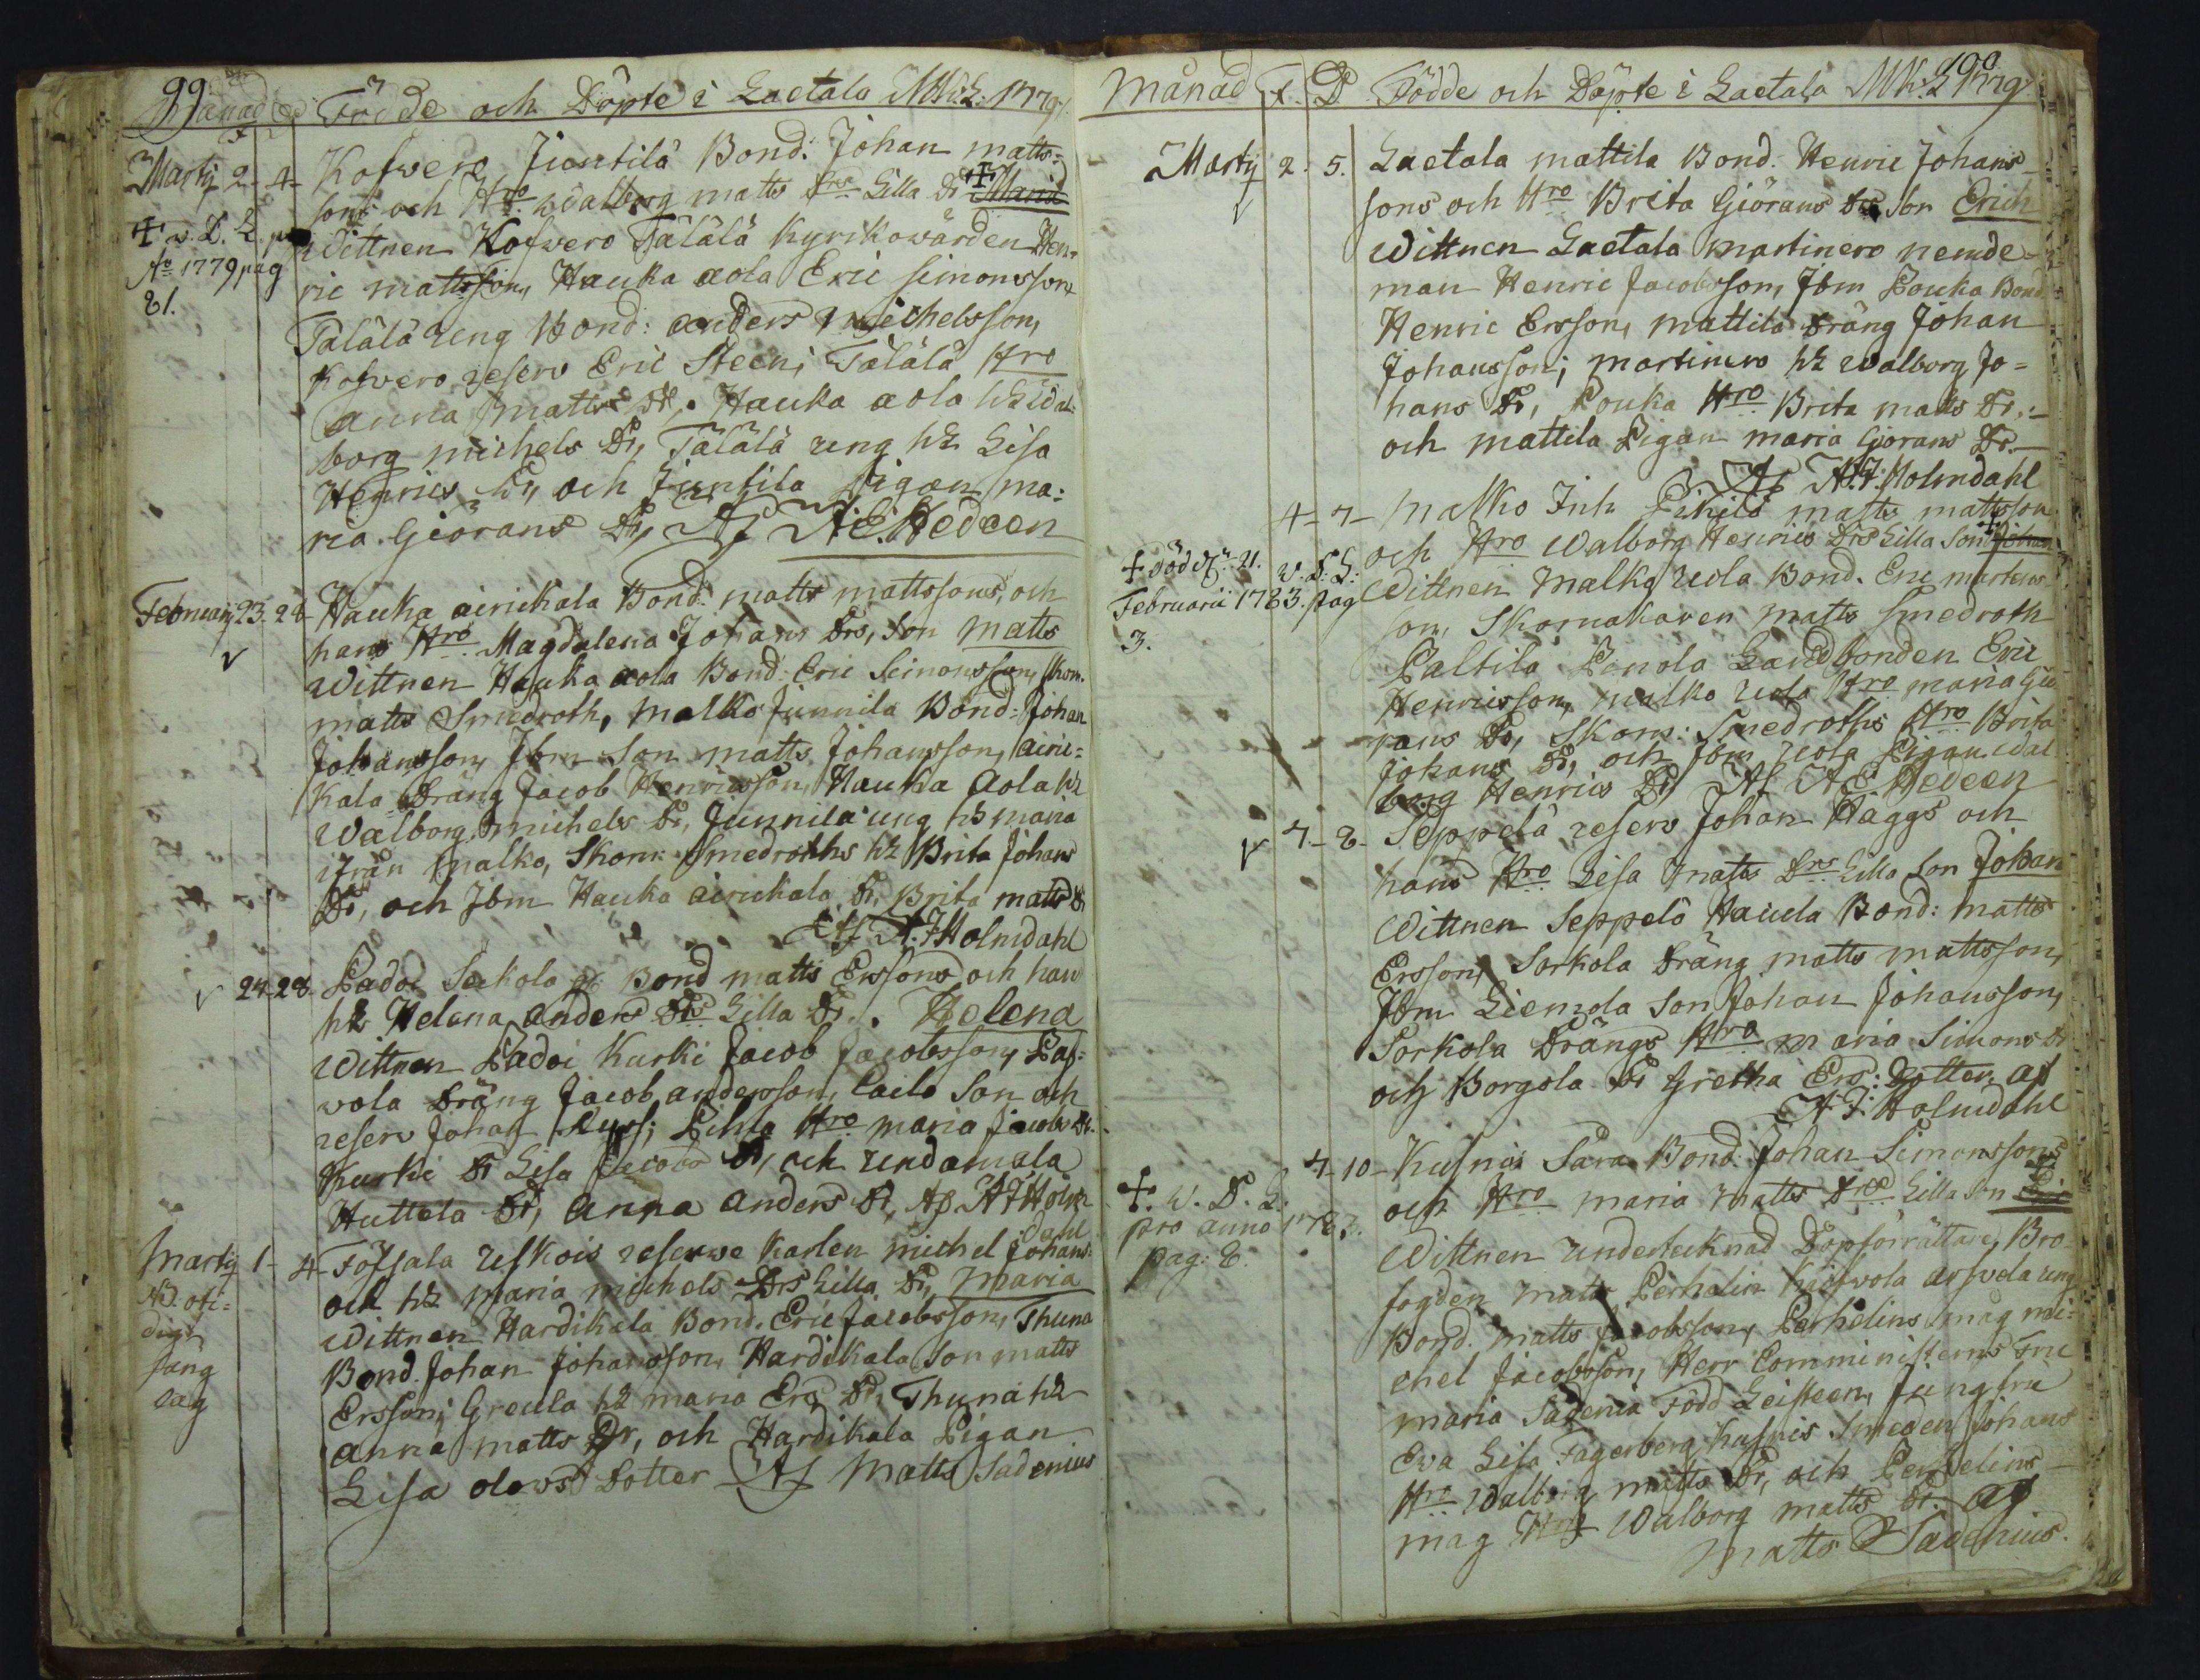 99.
Månad F D Födde och Döpte i Laetala MK:L 1779.
Martij 2 - 4 - Kofvero Juntila Bond: Johan matts=
sons och Hro Walborg matts Drs Lilla Dr Maria
✝ v. D. L. Wittnen Kofvero Tälälä Kyrkowärden Hen=
Ao 1779 pag ric mattsson, Hauka aola Eric Simonsson
81. Tälälä ung Bond: anders michelsson,
Kofvero reserv Eric Steen; Tälälä Hro
anna matts Dr, Hauka aola h2 Wal=
borg michels Dr, Tälälä ung h2 Lisa
Henrics Dr, och Juntila Pigan ma=
ria Giörans Dr, Af A: E. Hedeen
Februarij 23. 28 - Hauka airickala Bond: matts mattssons, och
hans Hro Magdalena Johans Drs, Son matts
Wittnen Hauka aola Bond: Eric Simonsson, Skom.
matts Smedroth, Malko Junnila Bond: Johan
Johansson, Jbm Son matts Johansson, airic=
kala Dräng Jacob Henricsson, Hauka Aola h2
Walborg michels Dr, Junnila ung h2 maria
ifrån malko, Skom: Smedroths h2 Brita Johans
Dr, och Jbm Hauka airickala Dr, Brita matts Dr
Af A. J Holmdahl
24 - 28 - Padoi Seikola Bond matts Erssons och hans
h2 Helena anders Drs Lilla Dr. Helena
Wittnen Padoi Kurki Jacob Jacobsson, Paf=
vola Dräng Jacob andersson, Laila Son och
reserv Johan Ryss; Pihla Hro maria Jacobs Dr.
Kurki Dr Lisa Jacobs Dr, och undamala
Huttola Dr, Anna anders Dr, Af A J Holm
dahl
Martij 1 - 4 - Töfsala uskois reserve Karlen michel Johans:
och h2 maria michels Drs Lilla Dr, Maria
Wittnen Hardikala Bond. Eric Jacobsson, Thuna
Bond. Johan Johansson, Hardikala Son matts
Ersson; Greula h2 maria Ers Dr, Thuna h2
anna matts Dr, och Hardikala Pigan
Lisa olows Dotter Af Matts Sadenius
100.
Månad F. D Födde och Döpte i Laetala MK: L 1779
Martij 2. 5. Laetala mattila Bond. Henric Johans-
sons och Hro Brita Giörans Drs Son Erich
Wittnen Laetala Martinero nemde-
man Henric Jacobsson, Jbm Pouka Bond.
Henric Ersson, mattila Dräng Johan
Johansson; martinero h2 Walborg Jo=
hans Dr, Pouka Hro Brita matts Dr,
och mattila Pigan maria Giörans Dr.
Af A. J. Holmdahl
4 - 7 - Malko Inh Pihila matts mattsson
och Hro Walborg Henrics Drs Lilla Son Johan
✝ död d: 21. v. D. L: Wittnen Malko uola Bond. Eric martens
Februarii 1783. pag son, Skomakaren matts Smedroth
3. Paltila Penola Landbonden Eric
Henricsson, malko uola Hro maria Giö
rans Dr, Skom: Smedroths Hro Brita
Johans Dr, och Jbm uola Pigan Wal
borg Henrics Dr, Af A E. Hedeen
7 - 8 - Seppelä reserv Johan Häggs och
hans Hro Lisa Matts Drs Lilla Son Johan
Wittnen Seppelä Haiula Bond: matts
Ersson, Sorkola Dräng matts mattsson,
Jbm Liemola Son Johan Johansson,
Sorkola Drängs Hro maria Simons Dr
och Borgola Dr Gretha Ers: Dotter, af
A: J: Holmdahl
7 - 10 - Kusnis Sara Bond. Johan Simonssons
och Hro maria matts Drs Lilla Son Eric
✝. v. D. L. pro anno 1783. pag: 8. Wittnen undertecknad Döpförrättare, Bro
fogden matts Perhelin Kaifvola arfvela ung
Bond. matts Jacobsson, Perhelins måg mi=
chel Jacobsson, Herr Comministerns Fru
maria Sadenia Född Leisteen, Jungfru
Eva Lisa Fagerberg, Kusnis Smeden Johans
Hro Walborg matts Dr, och Perhelins
mag Hro Walborg matts Dr. af
Matts Sadenius.